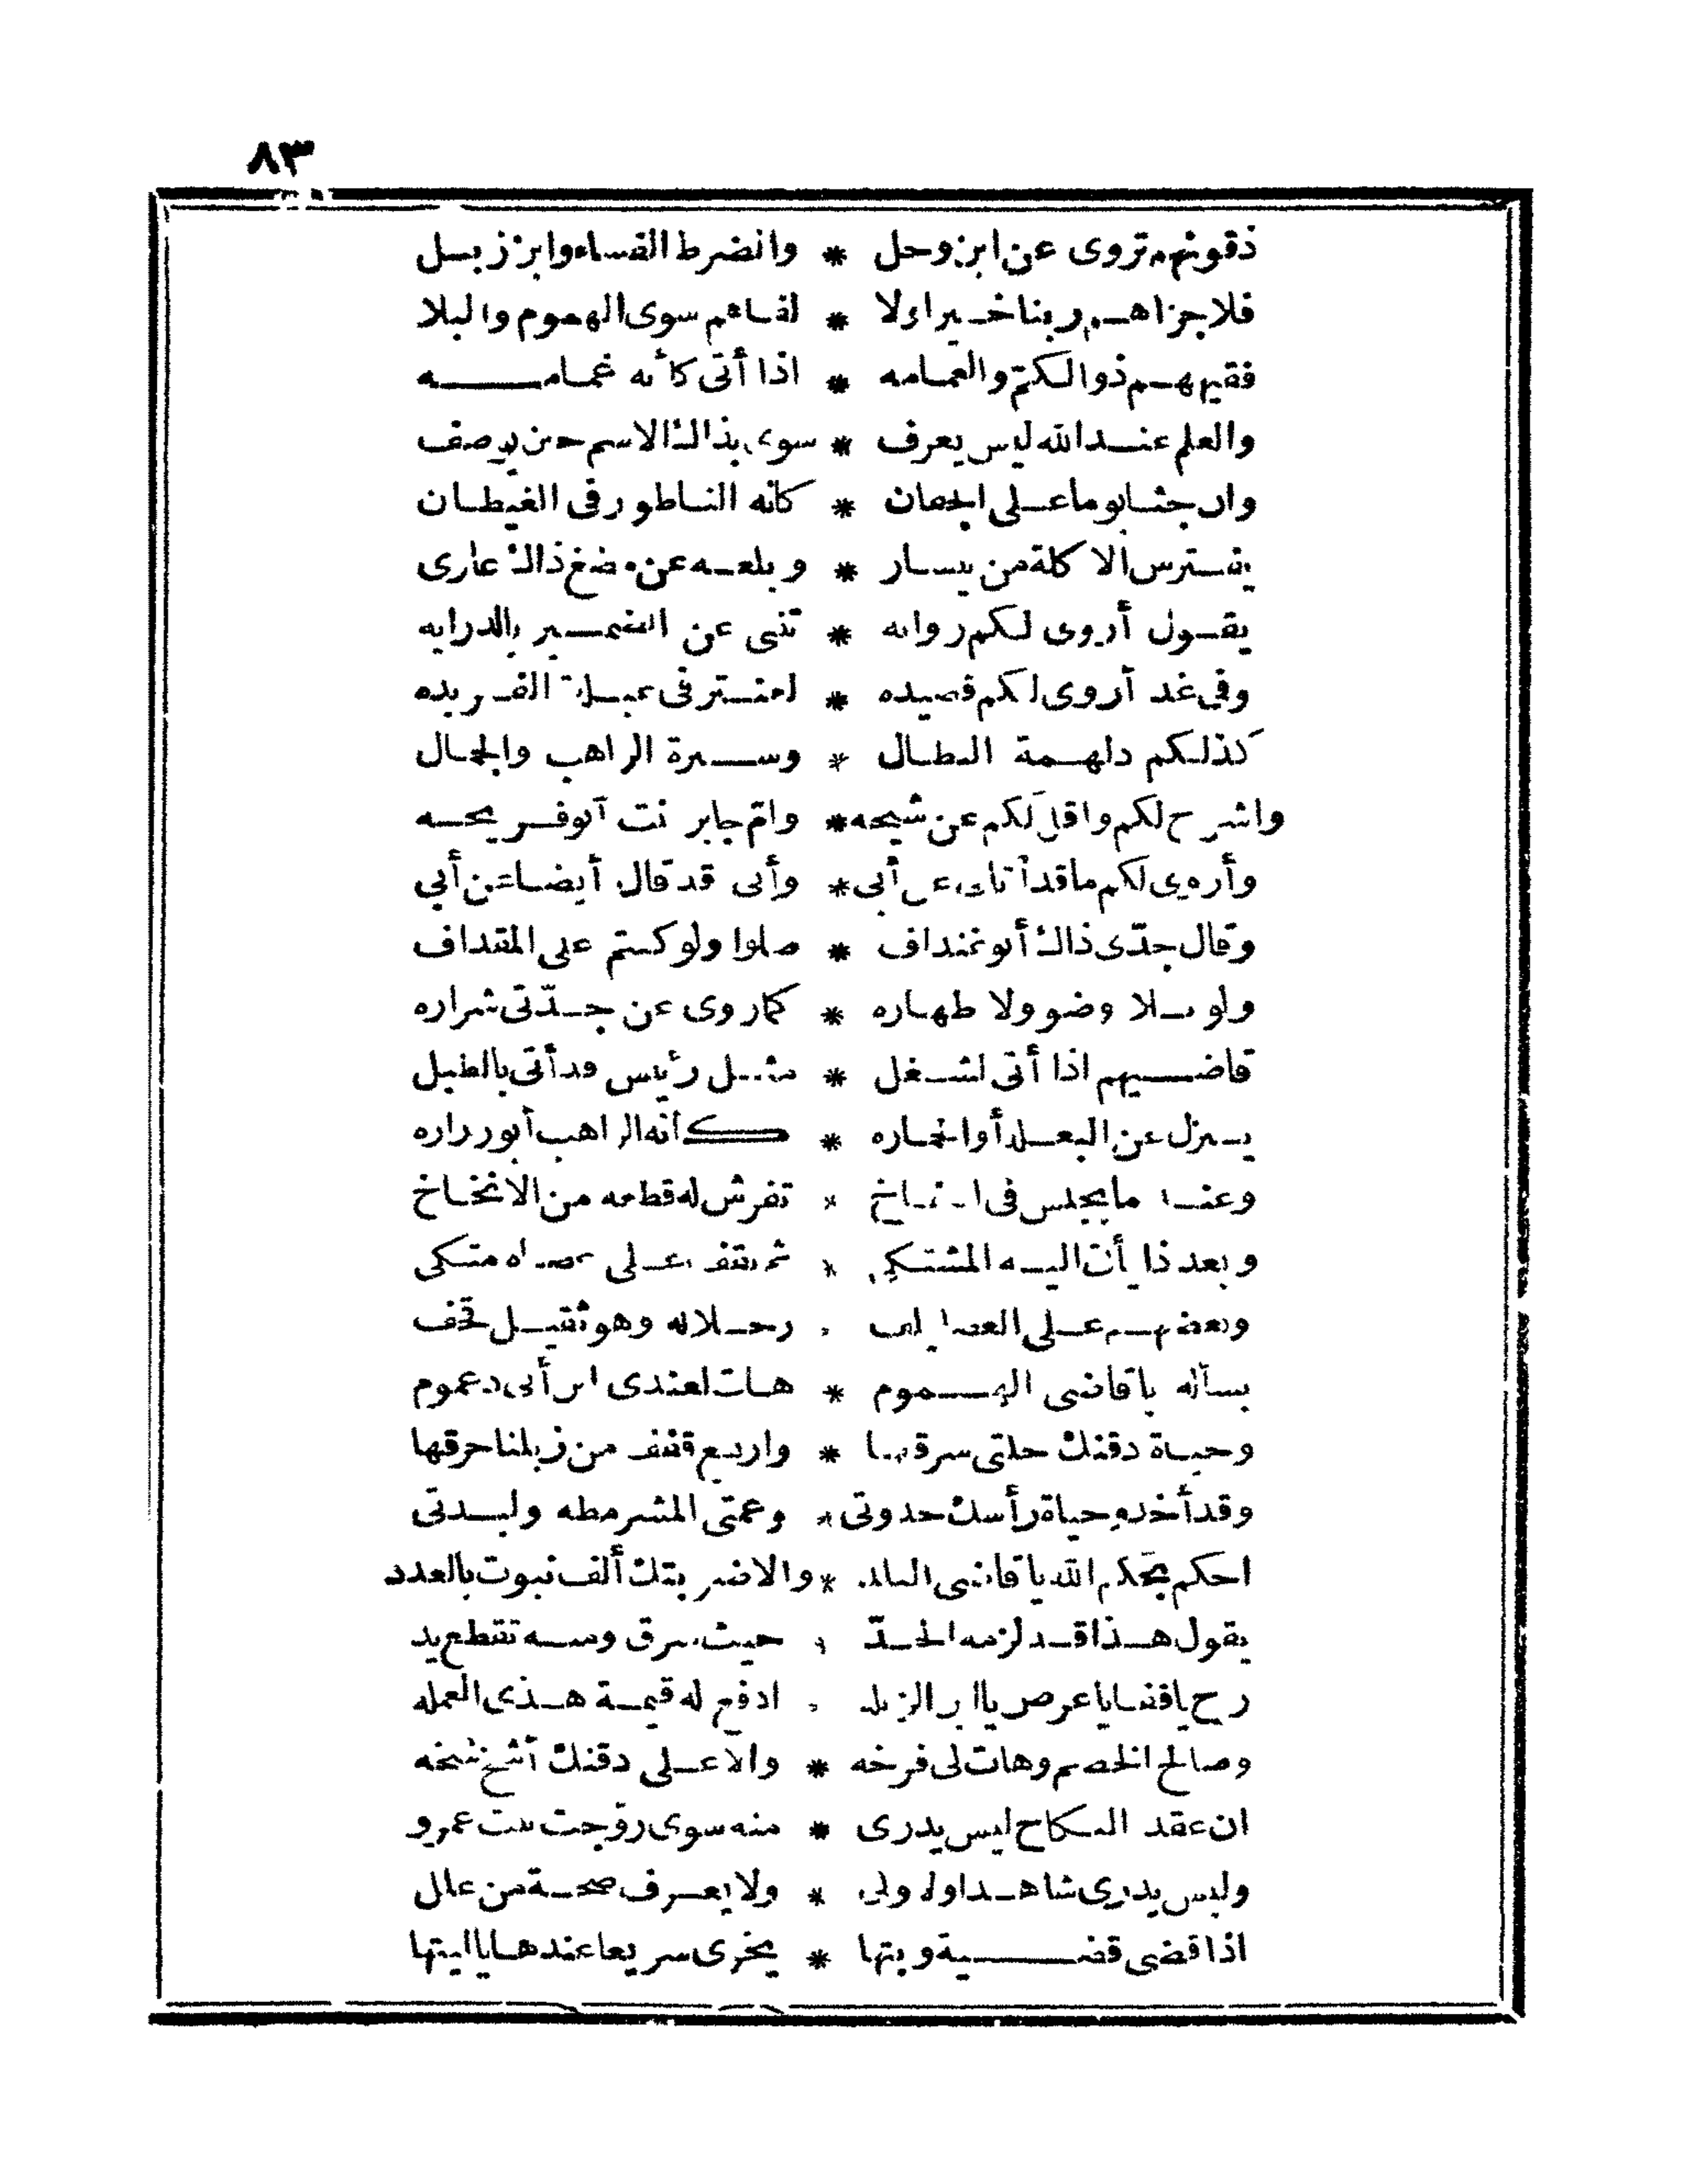 ٨٣
ذقونهم تروى عن ابن وحل * وانضرط الفساء وابن زبسل
فلا جزاهم ربنا خيرا ولا * لقاهم سوى الهموم والبلا
فقيههم ذو الكم والعمامه * اذا أتى كأنه غمامه
والعلم عند الله ليس يعرف * سوى بذاك الاسم حين يوصف
وان جثا يوما على الجعان * كانه الناطور فى الغيطان
يفترس الاكلة من يسار * وبلعه عن مضغ ذاك عارى
يقول أروى لكم روايه * تنبى عن التفسير بالدرايه
وفى غد أروى لكم قصيده * لعنتر فى عبلة الفريده
كذلكم دلهمة البطال * وسيرة الراهب والجمال
واشرح لكم واقل لكم عن شيحه * وام جابر بنت أبو فريحه
وأروى لكم ما قد أتانى عن أبى * وأبى قد قال أيضا عن أبى
وقال جدّى ذاك أبو غنداف * صلوا ولو كنتم على المقداف
ولو بلا وضو ولا طهاره * كما روى عن جدّتى شراره
قاضيهم اذا أتى لشغل * مثل رئيس قد أتى بالطبل
ينزل عن البعله أو الحماره * كأنه الراهب أبو زراره
وعند ما يجلس فى المناخ * تفرش له قطعه من الانخاخ
وبعد ذا يأت اليه المشتكى * ثم يقف على عصاه متكى
وبعضهم على العصا يلف * رجلا له وهو ثقيل قحف
يسأله يا قاضى الهموم * هات لعندى ابن أبى دعموم
وحياة دقنك حلتى سرقها * واربع قفف من زبلنا حرقها
وقد أخد وحياة رأسك حدوتى * وعمتى المشرمطه ولبدتى
احكم بحكم الله يا قاضى البلد * والا ضربتك ألف نبوت بالعدد
يقول هذا قد لزمه الحدّ * حيث سرق ومنه تقطع يد
رح يا قفا يا عرص يا ابن الزبله * ادفع له قيمة هذى العمله
وصالح الخصم وهات لى فرخه * والا على دقنك أشخ شخه
ان عقد النكاح ليس يدرى * منه سوى زوّجت بنت عمرو
وليس يدرى شاهدا ولا ولى * ولا يعرف صحة من علل
اذا قضى قضية وبتها * يخرى سريعا عندها ياليتها